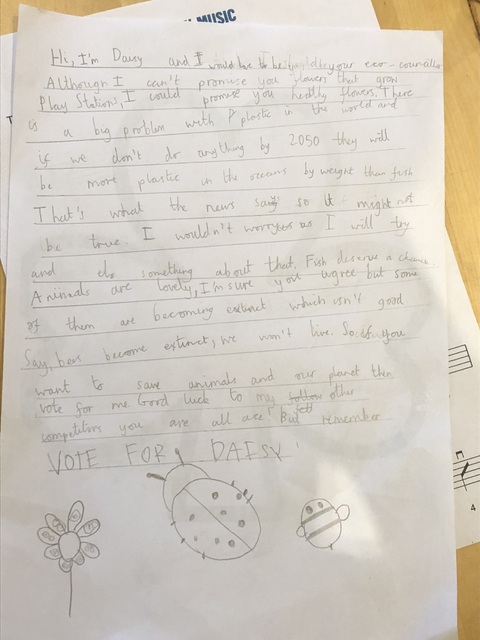 MUSIC
Hi, I'm Daisy and I would love to be your eco-councillor
Although I can't promise you flowers that grow
Play Stations, I could promise you healthy flowers. There
is a big problem with plastic in the world and
if we don't do anything by 2050 they will
be more plastic in the oceans by weight than fish
That's what the news says so it might not
be true. I wouldn't worry as I will try
and do something about that. Fish deserve a chance.
Animals are lovely, I'm sure you agree but some
of them are becoming extinct which isn't good
Say, bees become extinct, we won't live. So if you
want to save animals and our planet then
vote for me. Good luck to my other
competitors you are all ace! But remember
VOTE FOR DAISY!
4